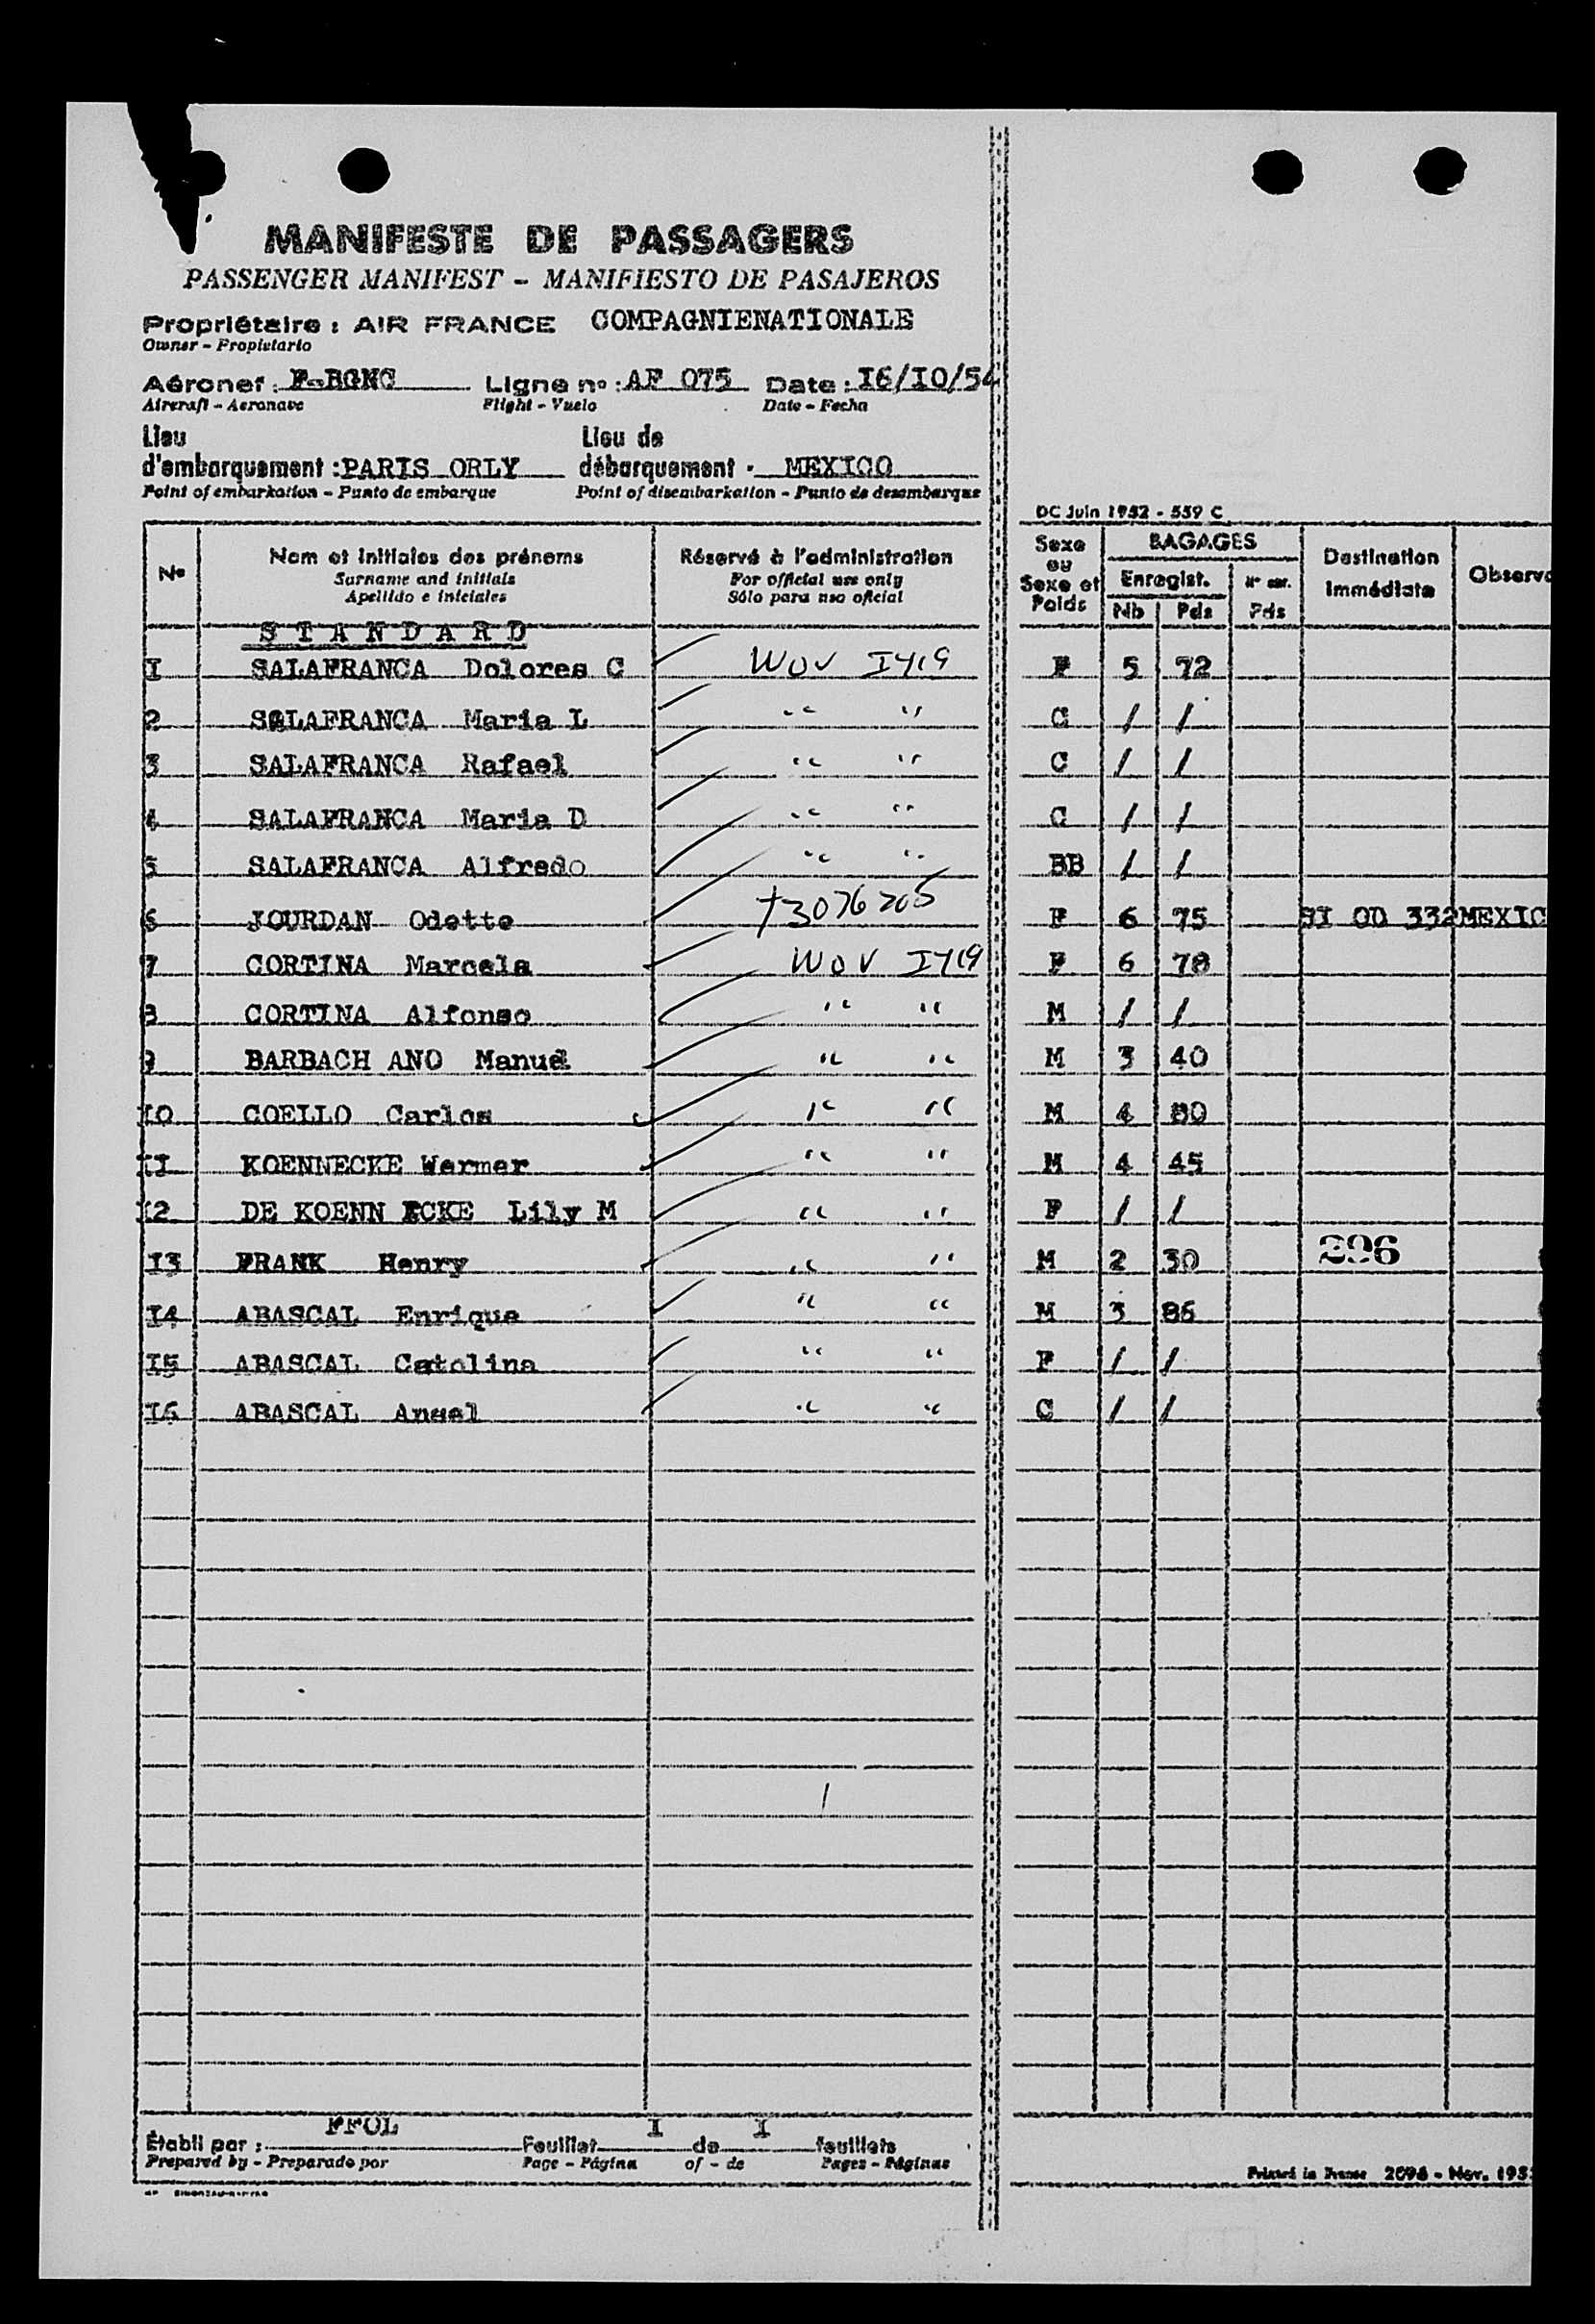 MANIFESTE DE PASSAGERS
PASSENGER MANIFEST - MANIFIESTO DE PASAJEROS
Propriétaire : AIR FRANCE COMPAGNIENATIONALE
Owner - Propietario
Aéronef : F-BGNC Ligne nº : AF 075 Date : I6/IO/54
Aircraft - Aeronave Flight - Vuelo Date - Fecha
Lieu d'embarquement : PARIS ORLY Lieu de débarquement : MEXICO
Point of embarkation - Punto de embarque Point of disembarkation - Punto de desembarque
DC Juin 1952 - 559 C
Nº Nom et initiales des prénoms Réservé à l'administration Sexe ou Sexe et Poids BAGAGES Destination immédiate Observa
Surname and initials For official use only Enregist. Nº enr.
Apellido e iniciales Sólo para uso oficial Nb Pds Pds
STANDARD
I SALAFRANCA Dolores C WOV I419 F 5 72
2 SALAFRANCA Maria L " " C / /
3 SALAFRANCA Rafael " " C / /
4 SALAFRANCA Maria D " " C / /
5 SALAFRANCA Alfredo " " BB / /
6 JOURDAN Odette 73076205 F 6 75 OD 332MEXIC
7 CORTINA Marcela WOV I419 F 6 78
8 CORTINA Alfonso " " M / /
9 BARBACH ANO Manuel " " M 3 40
IO COELLO Carlos " " M 4 80
II KOENNECKE Werner " " M 4 45
I2 DE KOENN ECKE Lily M " " F / /
I3 FRANK Henry " " M 2 30 296
I4 ABASCAL Enrique " " M 3 86
I5 ABASCAL Catolina " " F / /
I6 ABASCAL Angel " " C / /
Établi par : FFOL Feuillet I de I feuillets
Prepared by - Preparado por Page - Página of - de Pages - Páginas
Printed in France 2096 - Nov. 195